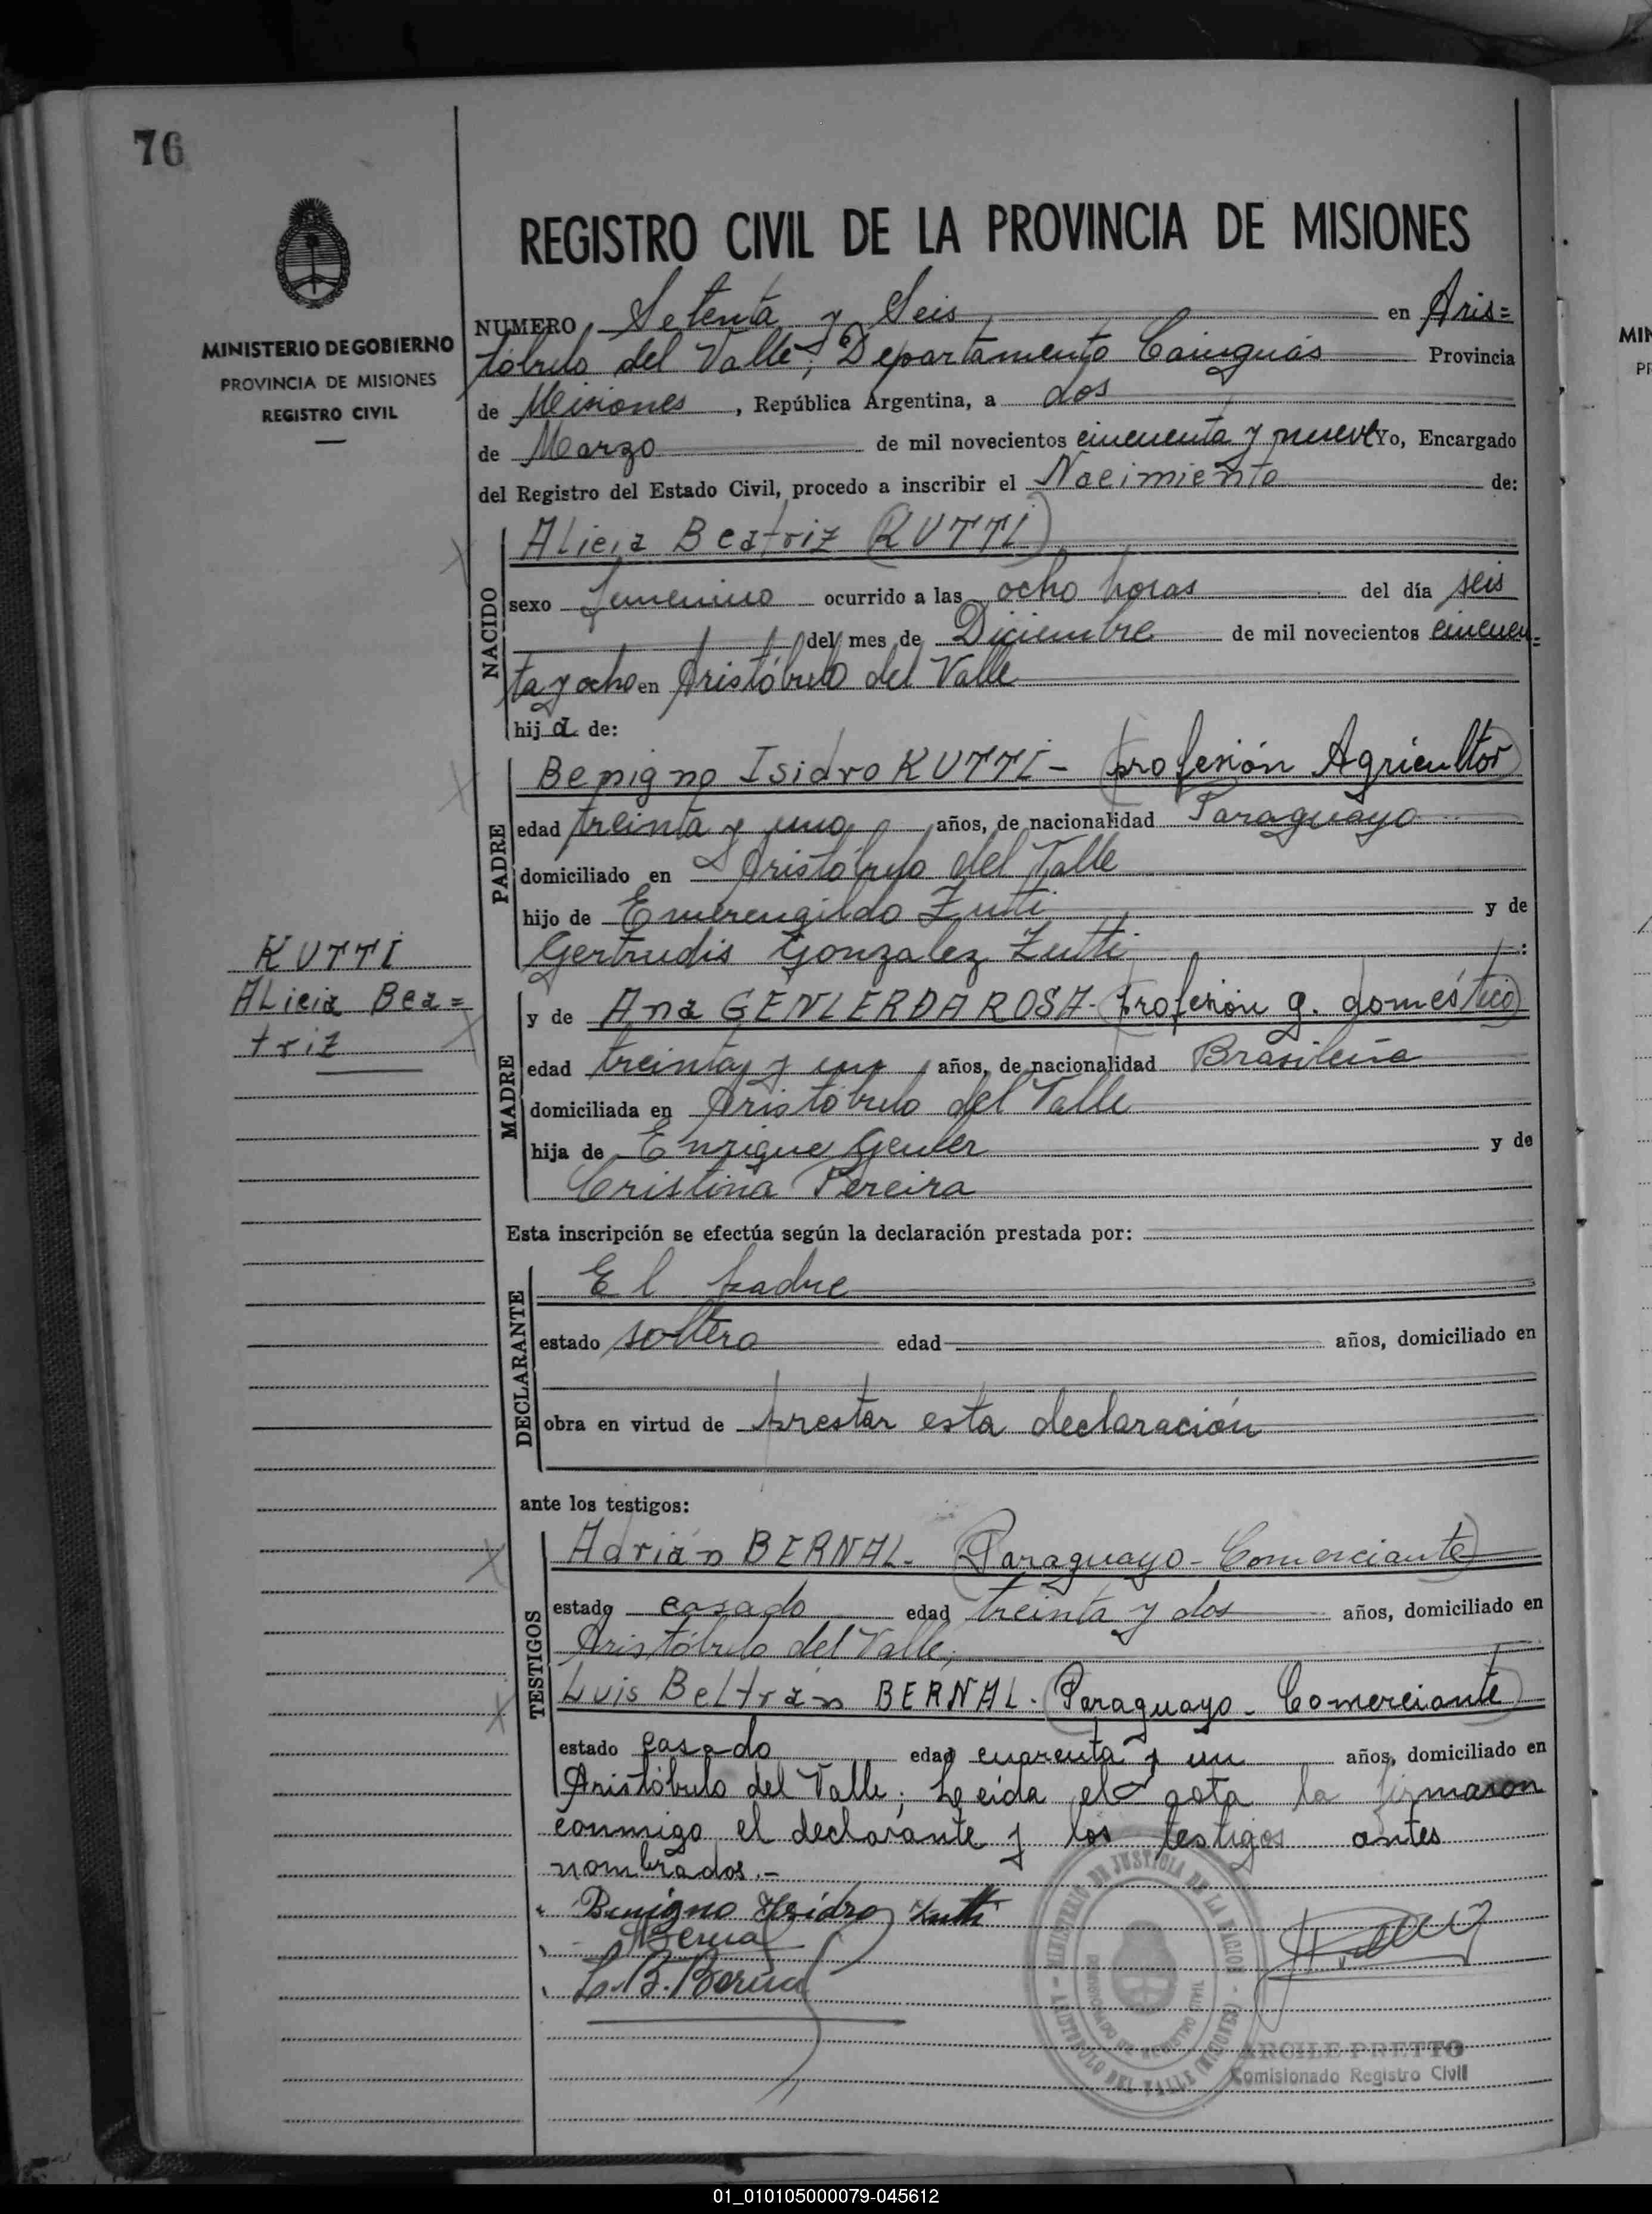 76
REGISTRO CIVIL DE LA PROVINCIA DE MISIONES
MINISTERIO DE GOBIERNO
PROVINCIA DE MISIONES
REGISTRO CIVIL
NUMERO Setenta y Seis en Aris=
tóbulo del Valle, Departamento Cainguás Provincia
de Misiones, República Argentina, a dos
de Marzo de mil novecientos cincuenta y nueve Yo, Encargado
del Registro del Estado Civil, procedo a inscribir el Nacimiento de:
NACIDO
Alicia Beatriz (KUTTI)
sexo femenino ocurrido a las ocho horas del día seis
del mes de Diciembre de mil novecientos cincuen=
ta y ocho en Aristóbulo del Valle
hija de:
PADRE
Benigno Isidro KUTTI - (profesión Agricultor)
edad treinta y uno años, de nacionalidad Paraguayo
domiciliado en Aristóbulo del Valle
hijo de Emerengildo Zutti y de
Gertrudis Gonzalez Zutti :
KUTTI
ALicia Bea=
triz
MADRE
y de Ana GENLERDAROSA - (profesión q. doméstico)
edad treinta y un años, de nacionalidad Brasileña
domiciliada en Aristóbulo del Valle
hija de Enrique Genler y de
Cristina Pereira
Esta inscripción se efectúa según la declaración prestada por:
DECLARANTE
El padre
estado soltero edad años, domiciliado en
obra en virtud de prestar esta declaración
ante los testigos:
TESTIGOS
Adrián BERNAL - (Paraguayo - Comerciante)
estado casado edad treinta y dos años, domiciliado en
Aristóbulo del Valle;
Luis Beltrán BERNAL - (Paraguayo - Comerciante)
estado casado edad cuarenta y un años, domiciliado en
Aristóbulo del Valle; Leída el acta la firmaron
conmigo el declarante y los testigos antes
nombrados.-
Benigno Isidro Kutti
Bernal
L. B. Bernal
MINISTERIO DE JUSTICIA DE LA NACION - ARISTOBULO DEL VALLE (MISIONES)
ARCILE PRETTO
Comisionado Registro Civil
MIN
01_010105000079-045612